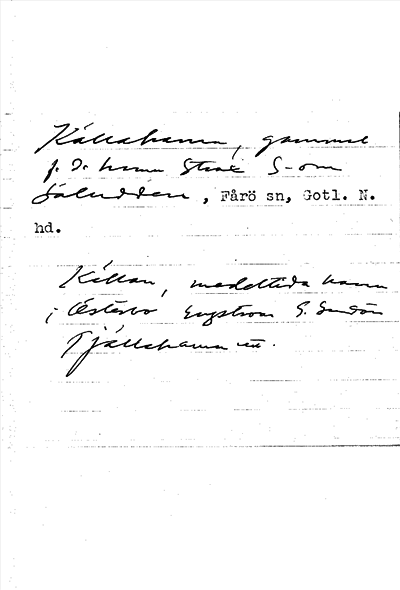 Källahamn, gammal
f. d. hamn strax S om
Såludden, Fårö sn, Gotl. N.
hd.
Källan, medeltida hamn
i Österbo Engström G. Sandön
Tjällahamn